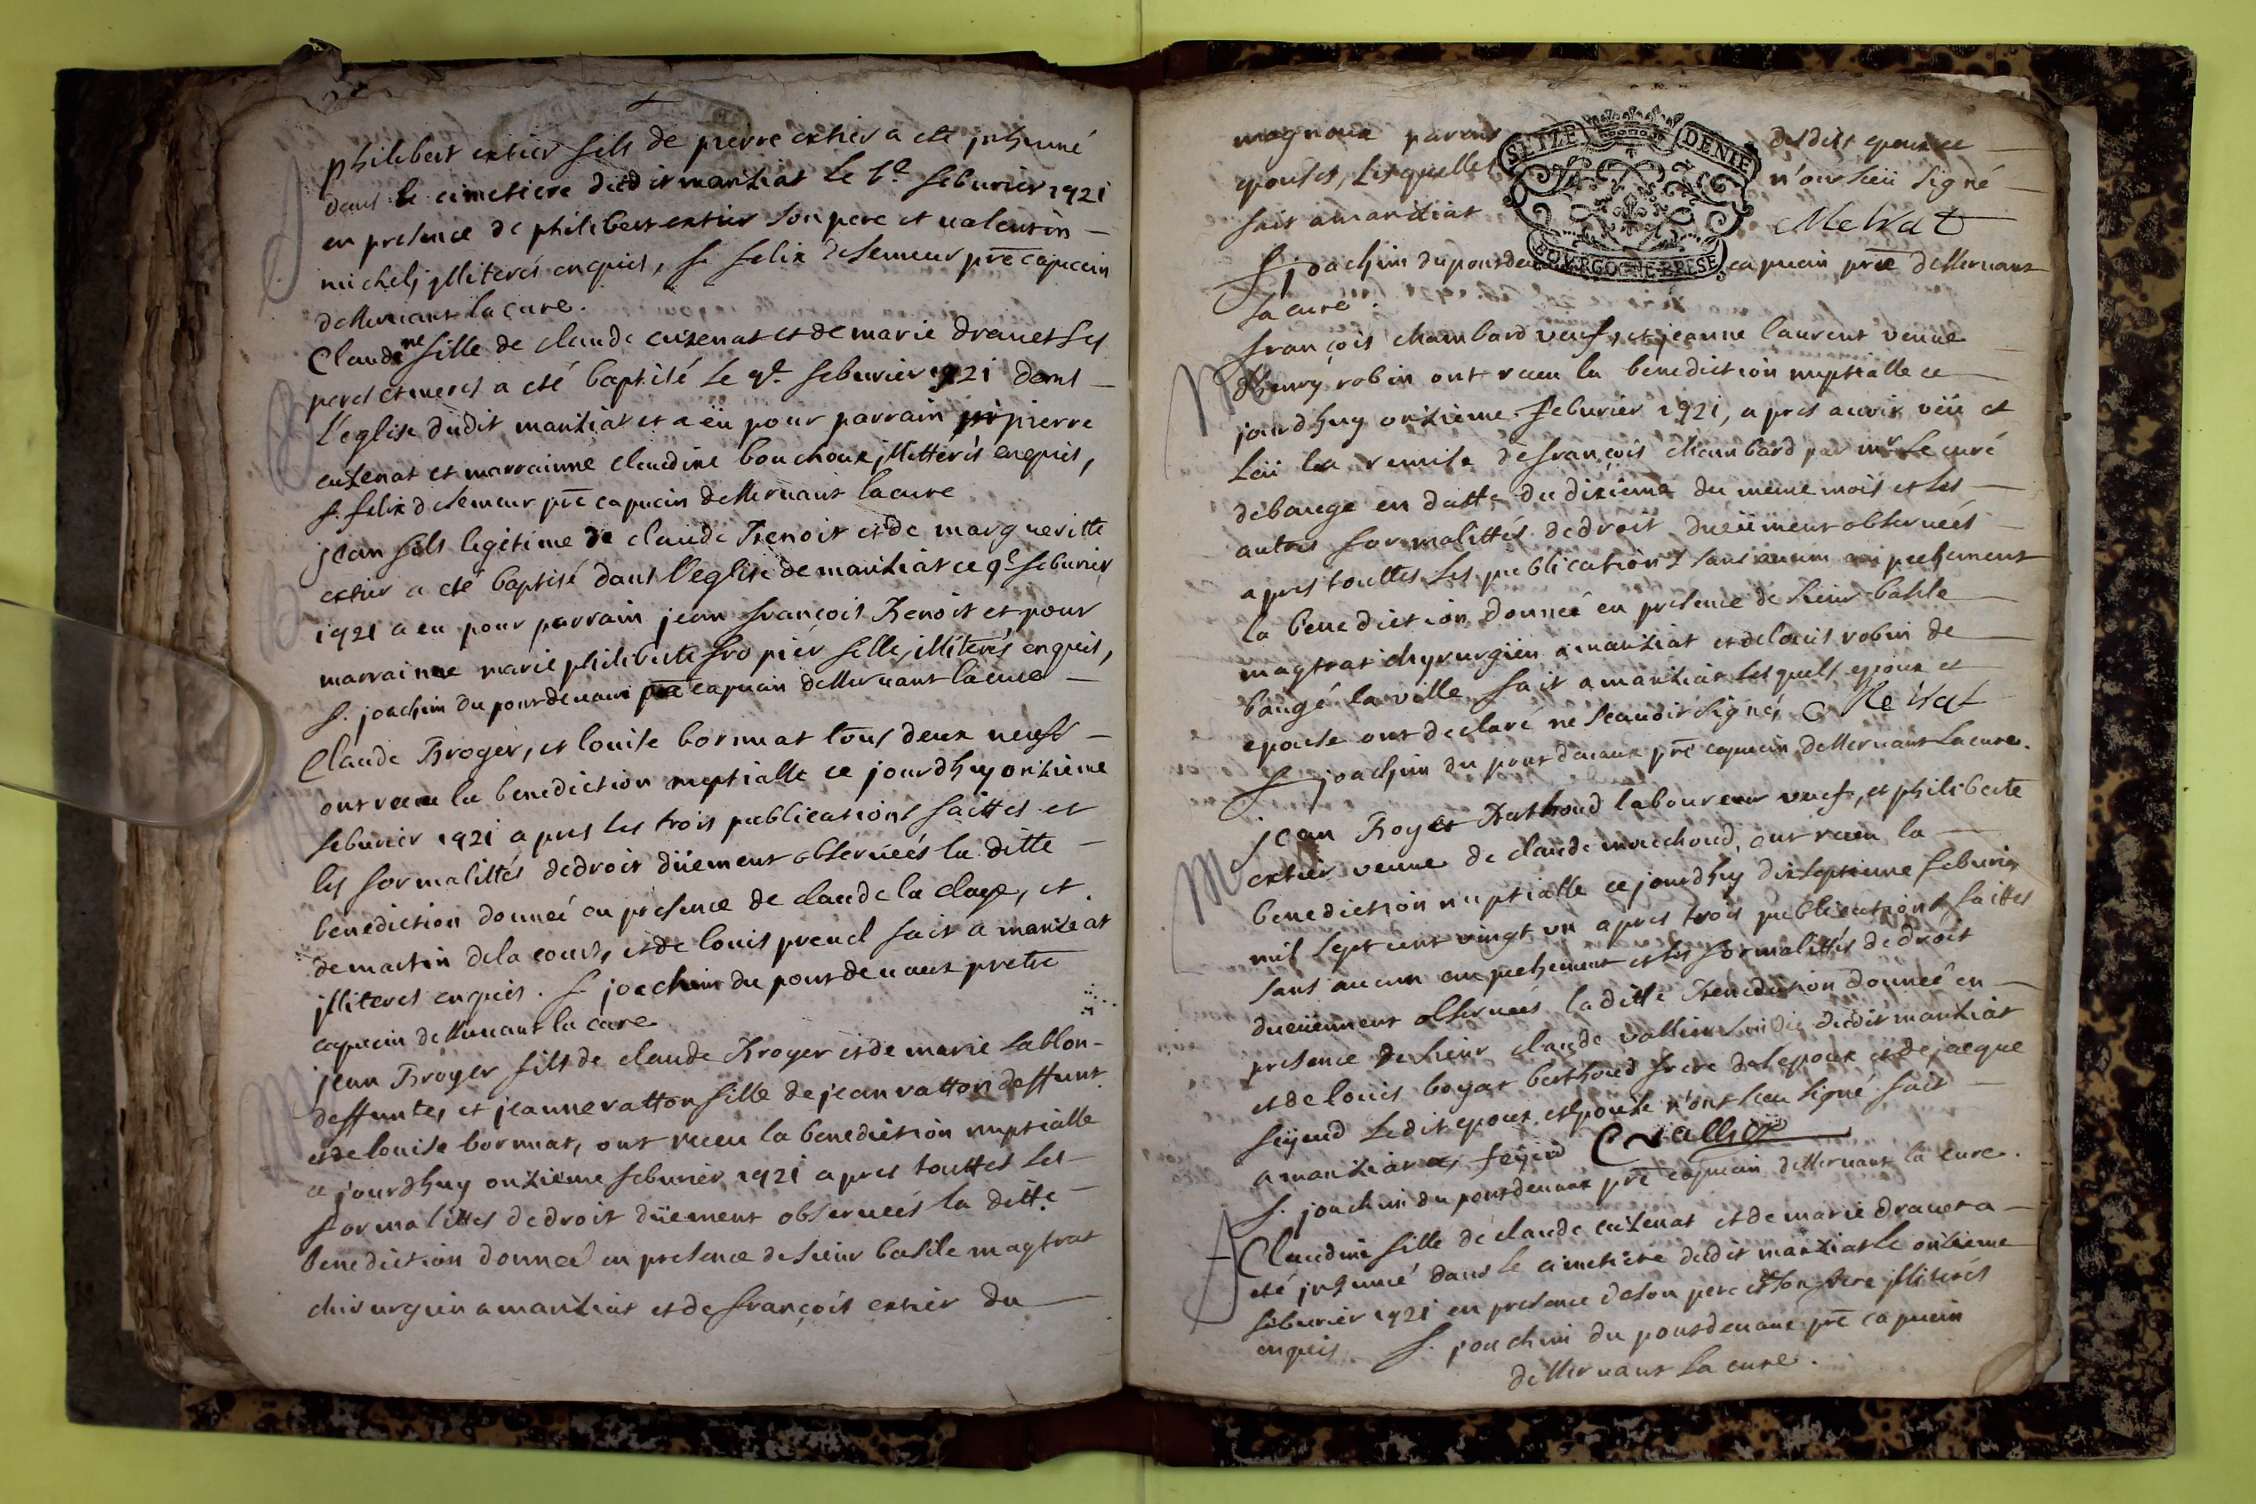 philibert extier fils de pierre extier a eté jnhumé
dans le cimetiere dudit manziat le feburier 1721
en presence de philibert extier son pere et valentin
michel, jlliterés enquis, f. felix de semeur pre capucin
desservant la cure.
Claudine fille de claude cuzenat et de marie dravet ses
peres et meres a eté baptisé le 9e feburier 1721 dans
l'eglise dudit manziat et a eü pour parrain pierre
cuzenat et marrainne claudine bouchoux jllitterés enquis,
f. felix de semeur pre capucin desservant la cure
jean fils legitime de claude Benoit et de margueritte
extier a eté baptisé dans l'eglise de manziat ce 9e feburier
1721 a eu pour parrain jean françois Benoit et pour
marrainne marie philiberte fropier fille, illiterés enquis,
f. joachim du pontdevaux pre capucin desservant la cure
Claude Broyer, et louise bornuat tous deux neufs
ont receu la benediction nuptialle ce jourdhuy onzieme
feburier 1721 apres les trois publications faittes et
les formalittés de droit düement observeés la ditte
benediction donneé en presence de claude la claye, et
de martin dela cour, et de louis preud fait a manziat
jlliteres enquis. f. joachim du pontdevaux pretre
capucin desservant la cure
jean Broyer fils de claude Broyer et de marie sablon
deffuntes, et jeanne vatton fille de jean vatton deffunt
et de louise bornuat, ont receu la benediction nuptialle
ce jourdhuy onzieme feburier 1721 apres touttes les
formalittes de droit düement observeés la ditte
benediction donneé en presence de sieur basile magtrat
chirurgien a manziat et de françois extier du
magnoux parens desdits epoux et
epouses, lesquelles n'ont sceü signé
fait a manziat
f joachim du pontdevaux capucin pre desservant
la cure.
françois chambard veuf, et jeanne laurent veuve
dhenry robin ont receu la benediction nuptialle ce
jourdhuy onzieme feburier 1721, apres avoir veü et
leü la remise de françois chambard par mr le curé
debauge en datte du dixieme du meme mois et les
autres formalittés de droit dueüment observeés
apres touttes les publications sans aucun enpechement
la benediction donneé en presence de sieur basile
magtrat chyrurgien a manziat et de louis robin de
baugé la ville fait a manziat lesquels epoux et
epouse ont declaré ne scavoir signé,
f joachim du pont devaux pre capucin desservant la cure.
jean Boyat Berthoud laboureur veuf, et philiberte
extier veuve de claude mouchoud, ont receu la
benediction nuptialle ce jourdhuy dixseptieme feburier
mil sept cent vingt un apres trois publications faittes
sans aucun enpechement et les formalittés de droit
dueüement observeés la ditte Benediction donneé en
presence de sieur claude vallier dudit manziat
et de louis boyat berthoud frere de lepoux et de jacque
feyeud ledit epoux et epouse n'ont sceu signé fait
a manziat feyeud C vallier
f. joachim du pontdevaux pre capucin desservant la cure.
Claudine fille de claude cuzenat et de marie dravet a
eté jnhumé dans le cimetiere dudit manziat le onzieme
feburier 1721 en presence de son pere et son frere jlliterés
enquis f. joachim du pontdevaux pre capucin
desservant la cure.
SEIZE DENIE
BOURGOGNE BRESE